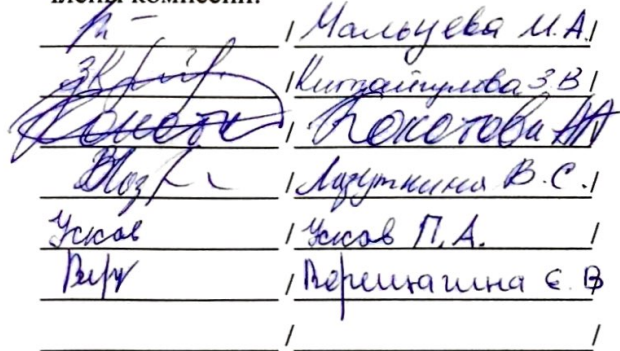 члены комиссии:
/ Мальцева М.А. /
/ Китайгулова З.В /
/ Кокотова АА
/ Лазуткина В.С. /
Усков / Усков П.А. /
/ Верещагина Е.В /
/ /